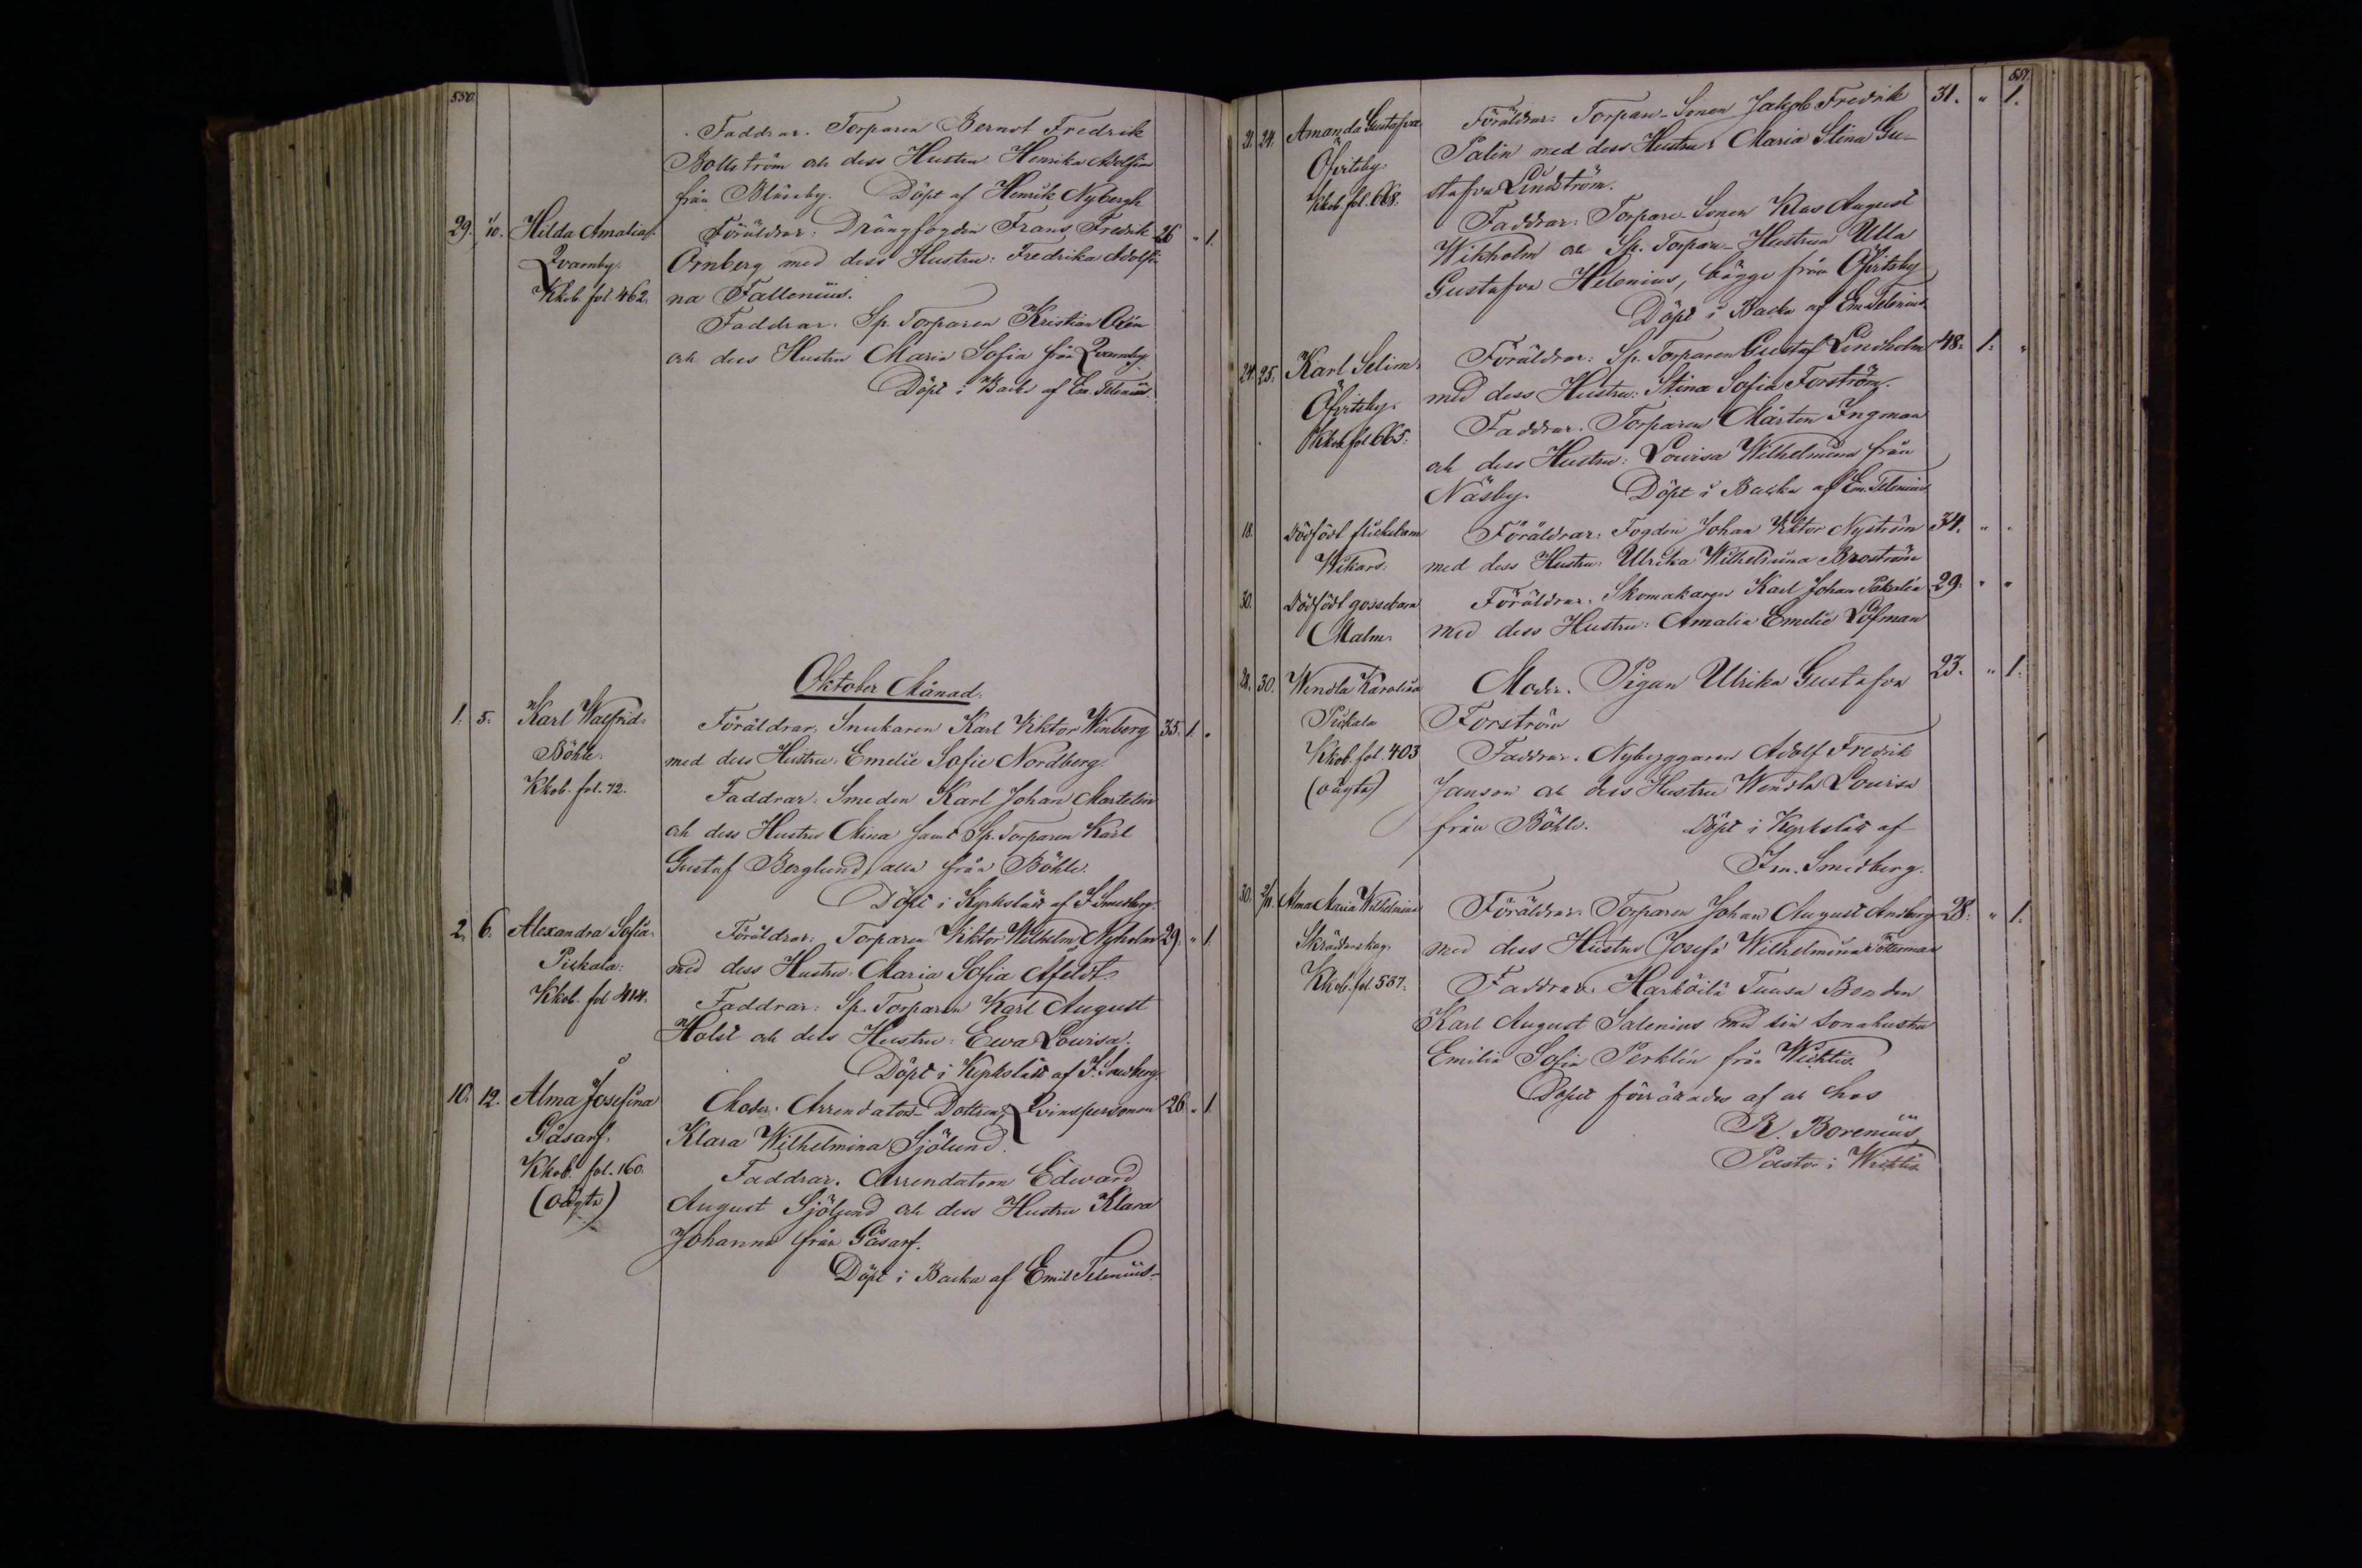 550.
Faddrar. Torparen Bernst Fredrik
Bollström och dess Hustru Henrika Adolfina
från Blåsby. Döpt af Henrik Nybergh
29. 1/10. Hilda Amalia Föräldrar: Drängfogden Frans Fredrik 26 " 1.
Qvarnby. Örnberg med dess Hustru: Fredrika Adolfi-
Kkob. fol. 462. na Fallenius.
Faddrar. Sp. Torparen Kristian Orén
och dess Hustru Maria Sofia från Qvarnby
Döpt i Backa af Em. Telenius.
Oktober Månad.
1. 5. Karl Walfrid. Föräldrar, Snickaren Karl Viktor Winberg 35. 1. "
Böhle. med dess Hustru. Emelie Sofie Nordberg.
Kkob. fol. 72. Faddrar: Smeden Karl Johan Martelin
och dess Hustru Mina samt Sp. Torparen Karl
Gustaf Berglund, alla från Böhle.
Döpt i Kyrkslätt af F. Smedberg.
2. 6. Alexandra Sofia. Föräldrar: Torparen Viktor Wilhelm Nyholm 29. " 1
Pickala: med dess Hustru: Maria Sofia Afeldt.
Kkob. fol 414. Faddrar: Sp. Torparen Karl August
Holst och dess Hustru: Ewa Lowisa.
Döpt i Kyrkslätt af F. Smedberg.
10. 12. Alma Josefina Moder: Arrendators-Dottren, Qvinspersonen 26 " 1
Gåsarf. Klara Wilhelmina Sjölund.
Kkob. fol. 160. Faddrar. Arrendatorn Edward
(oägta) August Sjölund och dess Hustru Klara
Johanna från Gåsarf.
Döpt i Backa af Emil Telenius.
551.
21. 24. Amanda Gustafva Föräldrar: Torpare-Sonen Jakob Fredrik 31. " 1.
Öfvitsby. Palin med dess Hustru: Maria Stina Gu-
Kkob. fol. 668. stafva Lindström.
Faddrar: Torpare-Sonen Klas August
Wikholm och Sp. Torpare-Hustrun Ulla
Gustafva Helenius, bägge från Öfvitsby
Döpt i Backa af Em. Telenius.
24. 25. Karl Selim. Föräldrar: Sp. Torparen Gustaf Lindholm 48. 1. "
Öfvitsby. med dess Hustru: Stina Sofia Forström.
Kkob. fol 665. Faddrar. Torparen Mårten Ingman
och dess Hustru: Lovisa Wilhelmina från
Näsby. Döpt i Backa af Em. Telenius
18. Dödfödt flickebarn Föräldrar: Fogden Johan Viktor Nyström 34. " "
Wikars. med dess Hustru: Ulrika Wilhelmina Broström
30. Dödfödt gossebarn Föräldrar. Skomakaren Karl Johan 29. " "
Malm. med dess Hustru: Amalia Emelie Löfman
28. 30. Wendla Karolina Moder. Pigan Ulrika Gustafva 23. " 1.
Pickala Forström
Kkob. fol. 403 Faddrar. Nybyggaren Adolf Fredrik
(oägta) Janson och dess Hustru Wendla Lovisa
från Böhle. Döpt i Kyrkslätt af
Fm. Smedberg.
30. 2/11. Alma Maria Wilhelmina Föräldrar. Torparen Johan August Andberg 28. " 1.
Skräddarskog. med dess Hustru Josefa Wilhelmina Österman
Kkob. fol. 537. Faddrar. Harköilä Tuusa Bonden
Karl August Salenius med sin sonahustru
Emilia Sofia Perklén från Wichtis.
Dopet förrärades af och hos
R. Borenius,
Pastor i Wichtis